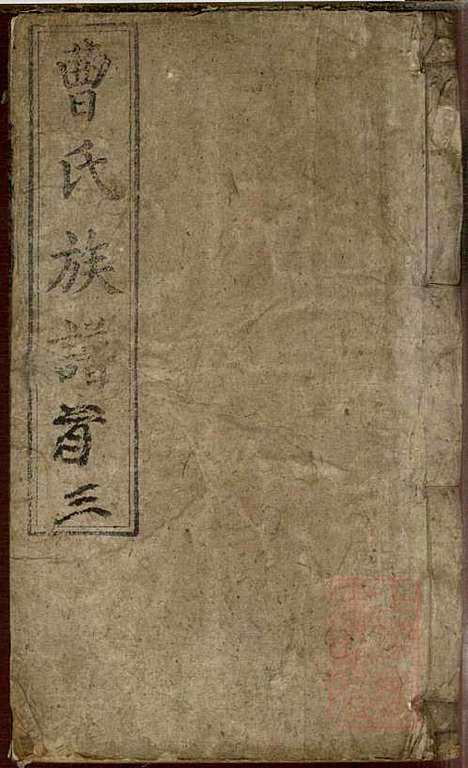 曹氏族譜首三